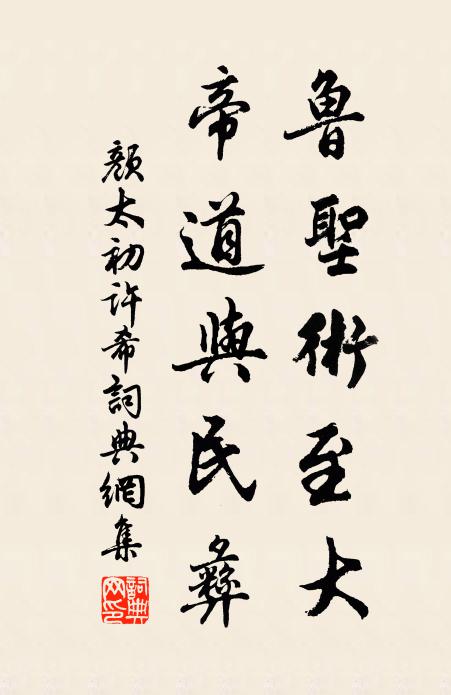 魯聖術至大
帝道與民彝
顏太初許希詞典網集
詞典網印